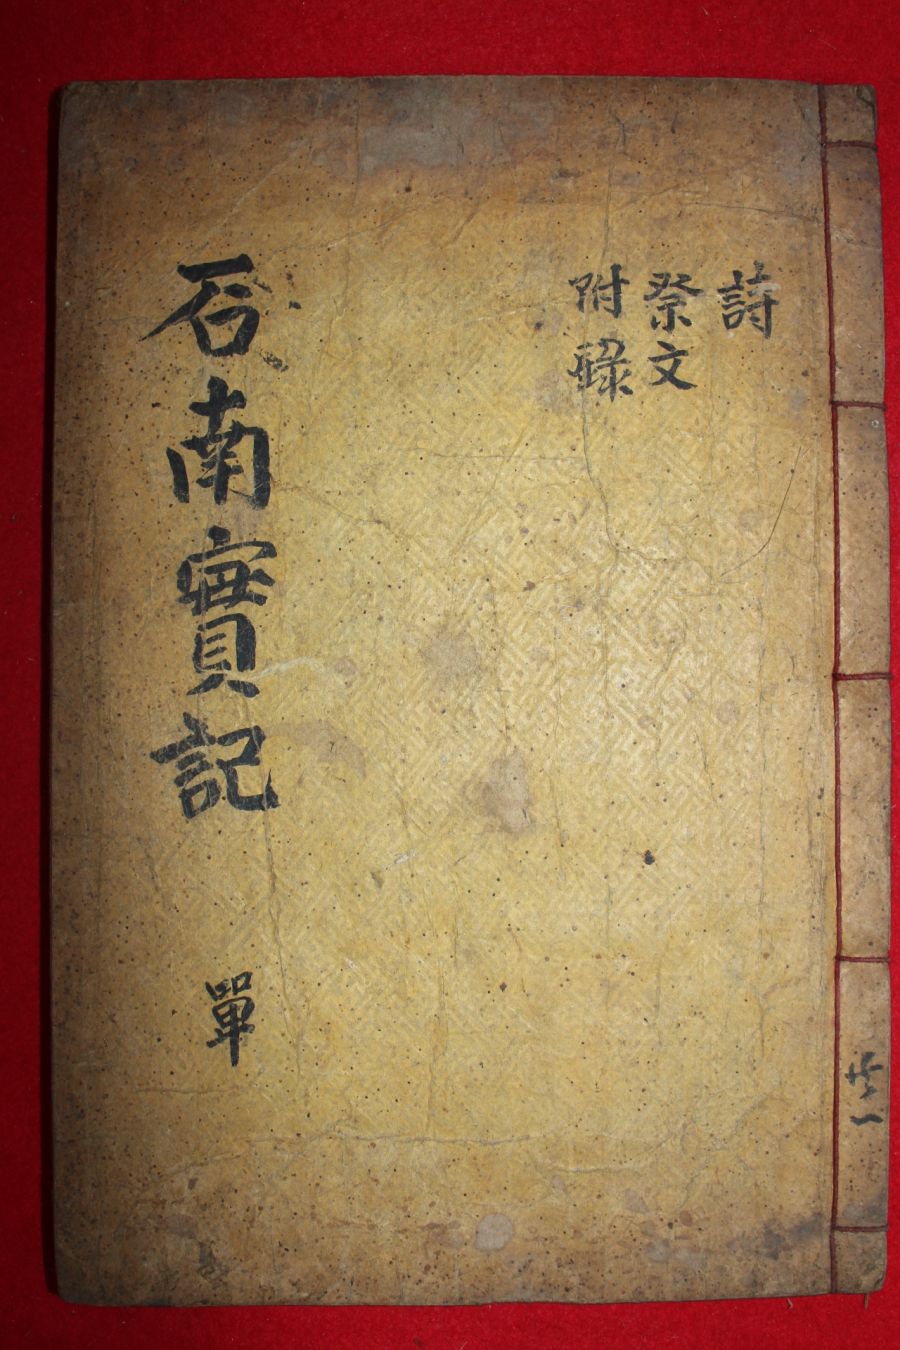 詩
祭文
附錄
石南實記 單
共一